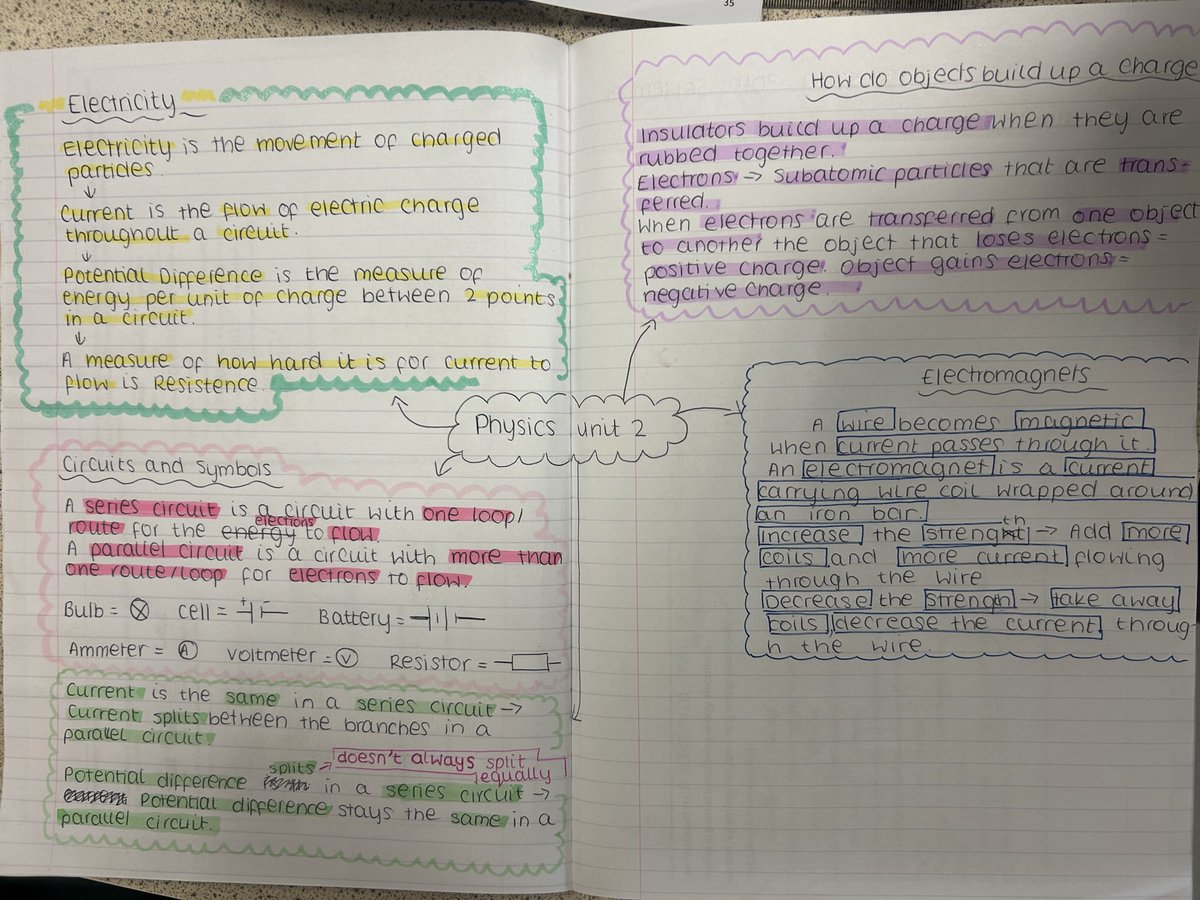 35
Electricity
Electricity is the movement of charged
particles.
↓
Current is the flow of electric charge
throughout a circuit.
↓
Potential Difference is the measure of
energy per unit of charge between 2 points
in a circuit.
↓
A measure of how hard it is for current to
flow is Resistence.
Physics unit 2
Circuits and Symbols
A series circuit is a circuit with one loop/
electrons
route for the energy to flow
A parallel circuit is a circuit with more than
one route/loop for electrons to flow.
Bulb = cell = + Battery =
Ammeter = A voltmeter = V Resistor =
Current is the same in a series circuit →
Current splits between the branches in a
parallel circuit.
doesn't always split
equally
Potential difference splits in a series circuit →
Potential difference stays the same in a
parallel circuit.
How do objects build up a charge
Insulators build up a charge when they are
rubbed together.
Electrons → Subatomic particles that are trans-
ferred.
When electrons are transferred from one object
to another the object that loses electrons =
positive charge. Object gains electrons =
negative charge.
Electromagnets
A wire becomes magnetic
when current passes through it.
An electromagnet is a current
carrying wire coil wrapped around
an iron bar.
Increase the strength → Add more
coils and more current flowing
through the wire
Decrease the strength → take away
coils, decrease the current throug-
h the wire.